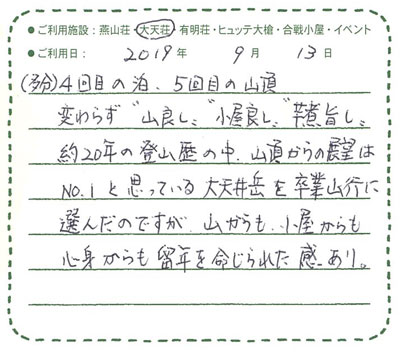 ●ご利用施設：燕山荘・大天荘・有明荘・ヒュッテ大槍・合戦小屋・イベント
●ご利用日： 2019 年 9 月 13 日
(多分)4回目の泊、5回目の山頂
変わらず〝山良し〟〝小屋良し〟〝芋煮旨し〟
約20年の登山歴の中、山頂からの展望は
NO.1と思っている大天井岳を卒業山行に
選んだのですが、山からも、小屋からも
心身からも留年を命じられた感あり。